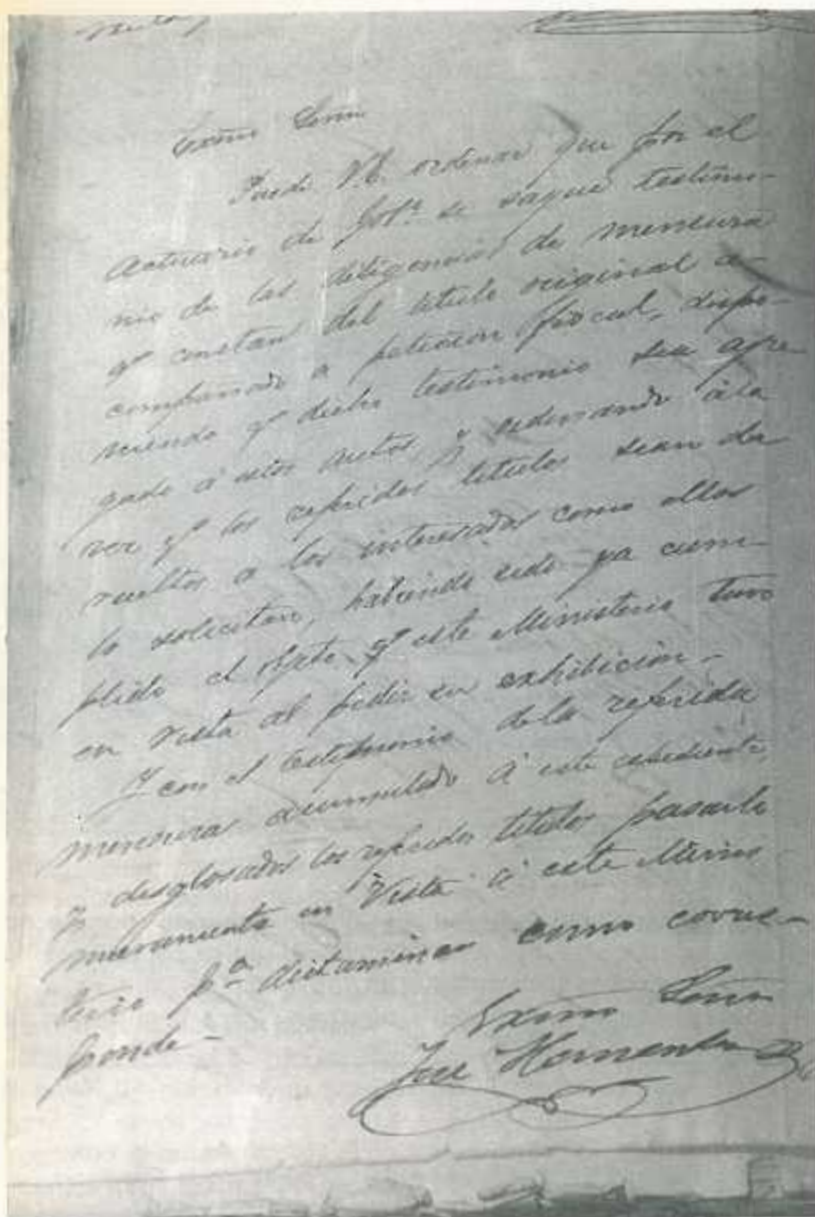 Exmo Señor
Puede V.E. ordenar que por el
Actuario de Gob.º se saque testimo-
nio de las diligencias de mensura
qe constan del titulo original a-
compañado a peticion fiscal, dispo-
niendo qe dicho testimonio sea agre-
gado á estos autos, y ordenando á la
vez qe los referidos titulos sean de
vueltos a los interesados como ellos
lo solicitan, habiendo sido ya cum-
plido el objeto qe este Ministerio tuvo
en vista al pedir su exhibicion.
Y con el testimonio de la referida
mensura acumulado á este espediente,
y desglosados los referidos titulos pasarlo
nuevamente en Vista á este Minis
terio p.ª dictaminar como corres-
ponde-
Exmo Señor
José